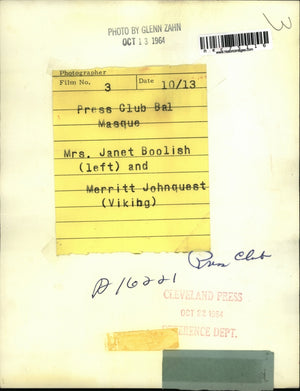 PHOTO BY GLENN ZAHN
OCT 13 1964
Photographer
Film No. 3 Date 10/13
Press Club Bal
Masque
Mrs. Janet Boolish
(left) and
Merritt Johnquest
(Viking)
Press Club
A16221
CLEVELAND PRESS
OCT 22 1964
REFERENCE DEPT.